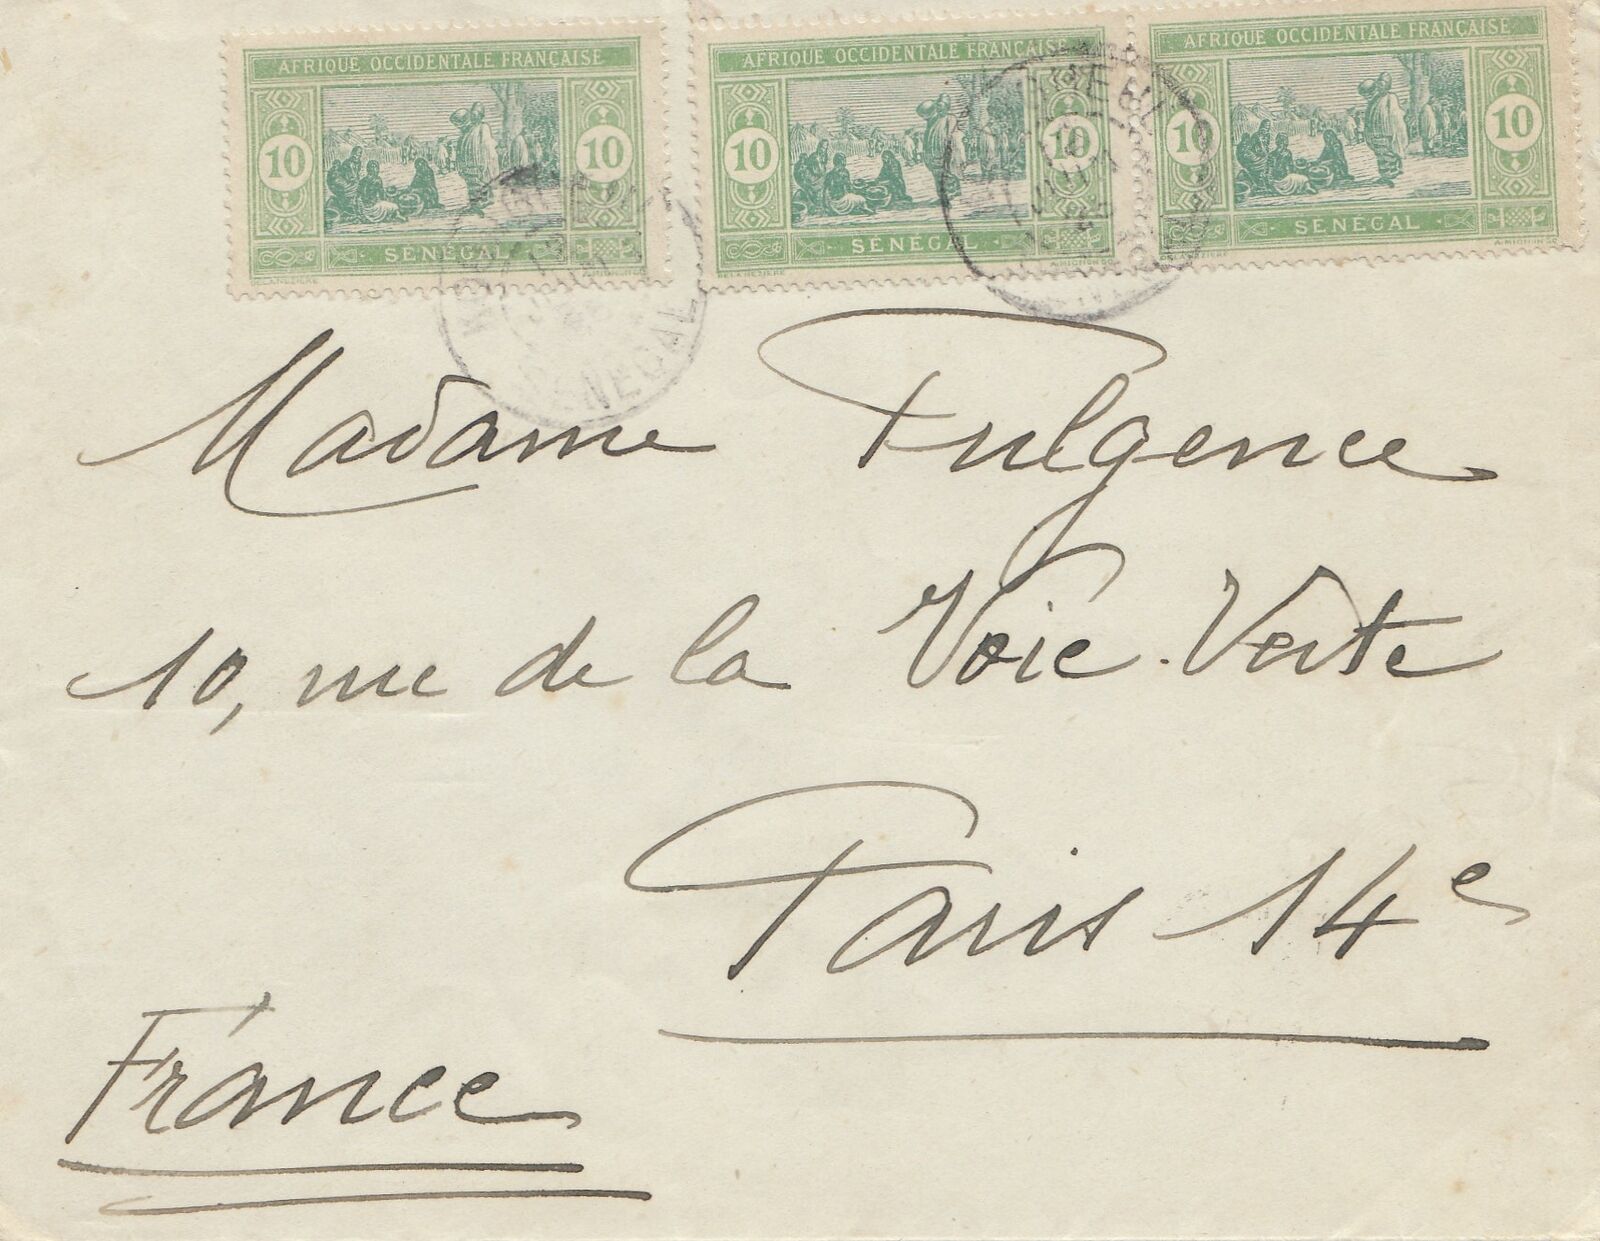 AFRIQUE OCCIDENTALE FRANÇAISE AFRIQUE OCCIDENTALE FRANÇAISE AFRIQUE OCCIDENTALE FRANÇAISE
10 10 10 10 10 10
SÉNÉGAL SÉNÉGAL SÉNÉGAL
SENEGAL
Madame Fulgence
10, rue de la Voie-Verte
Paris 14e
France